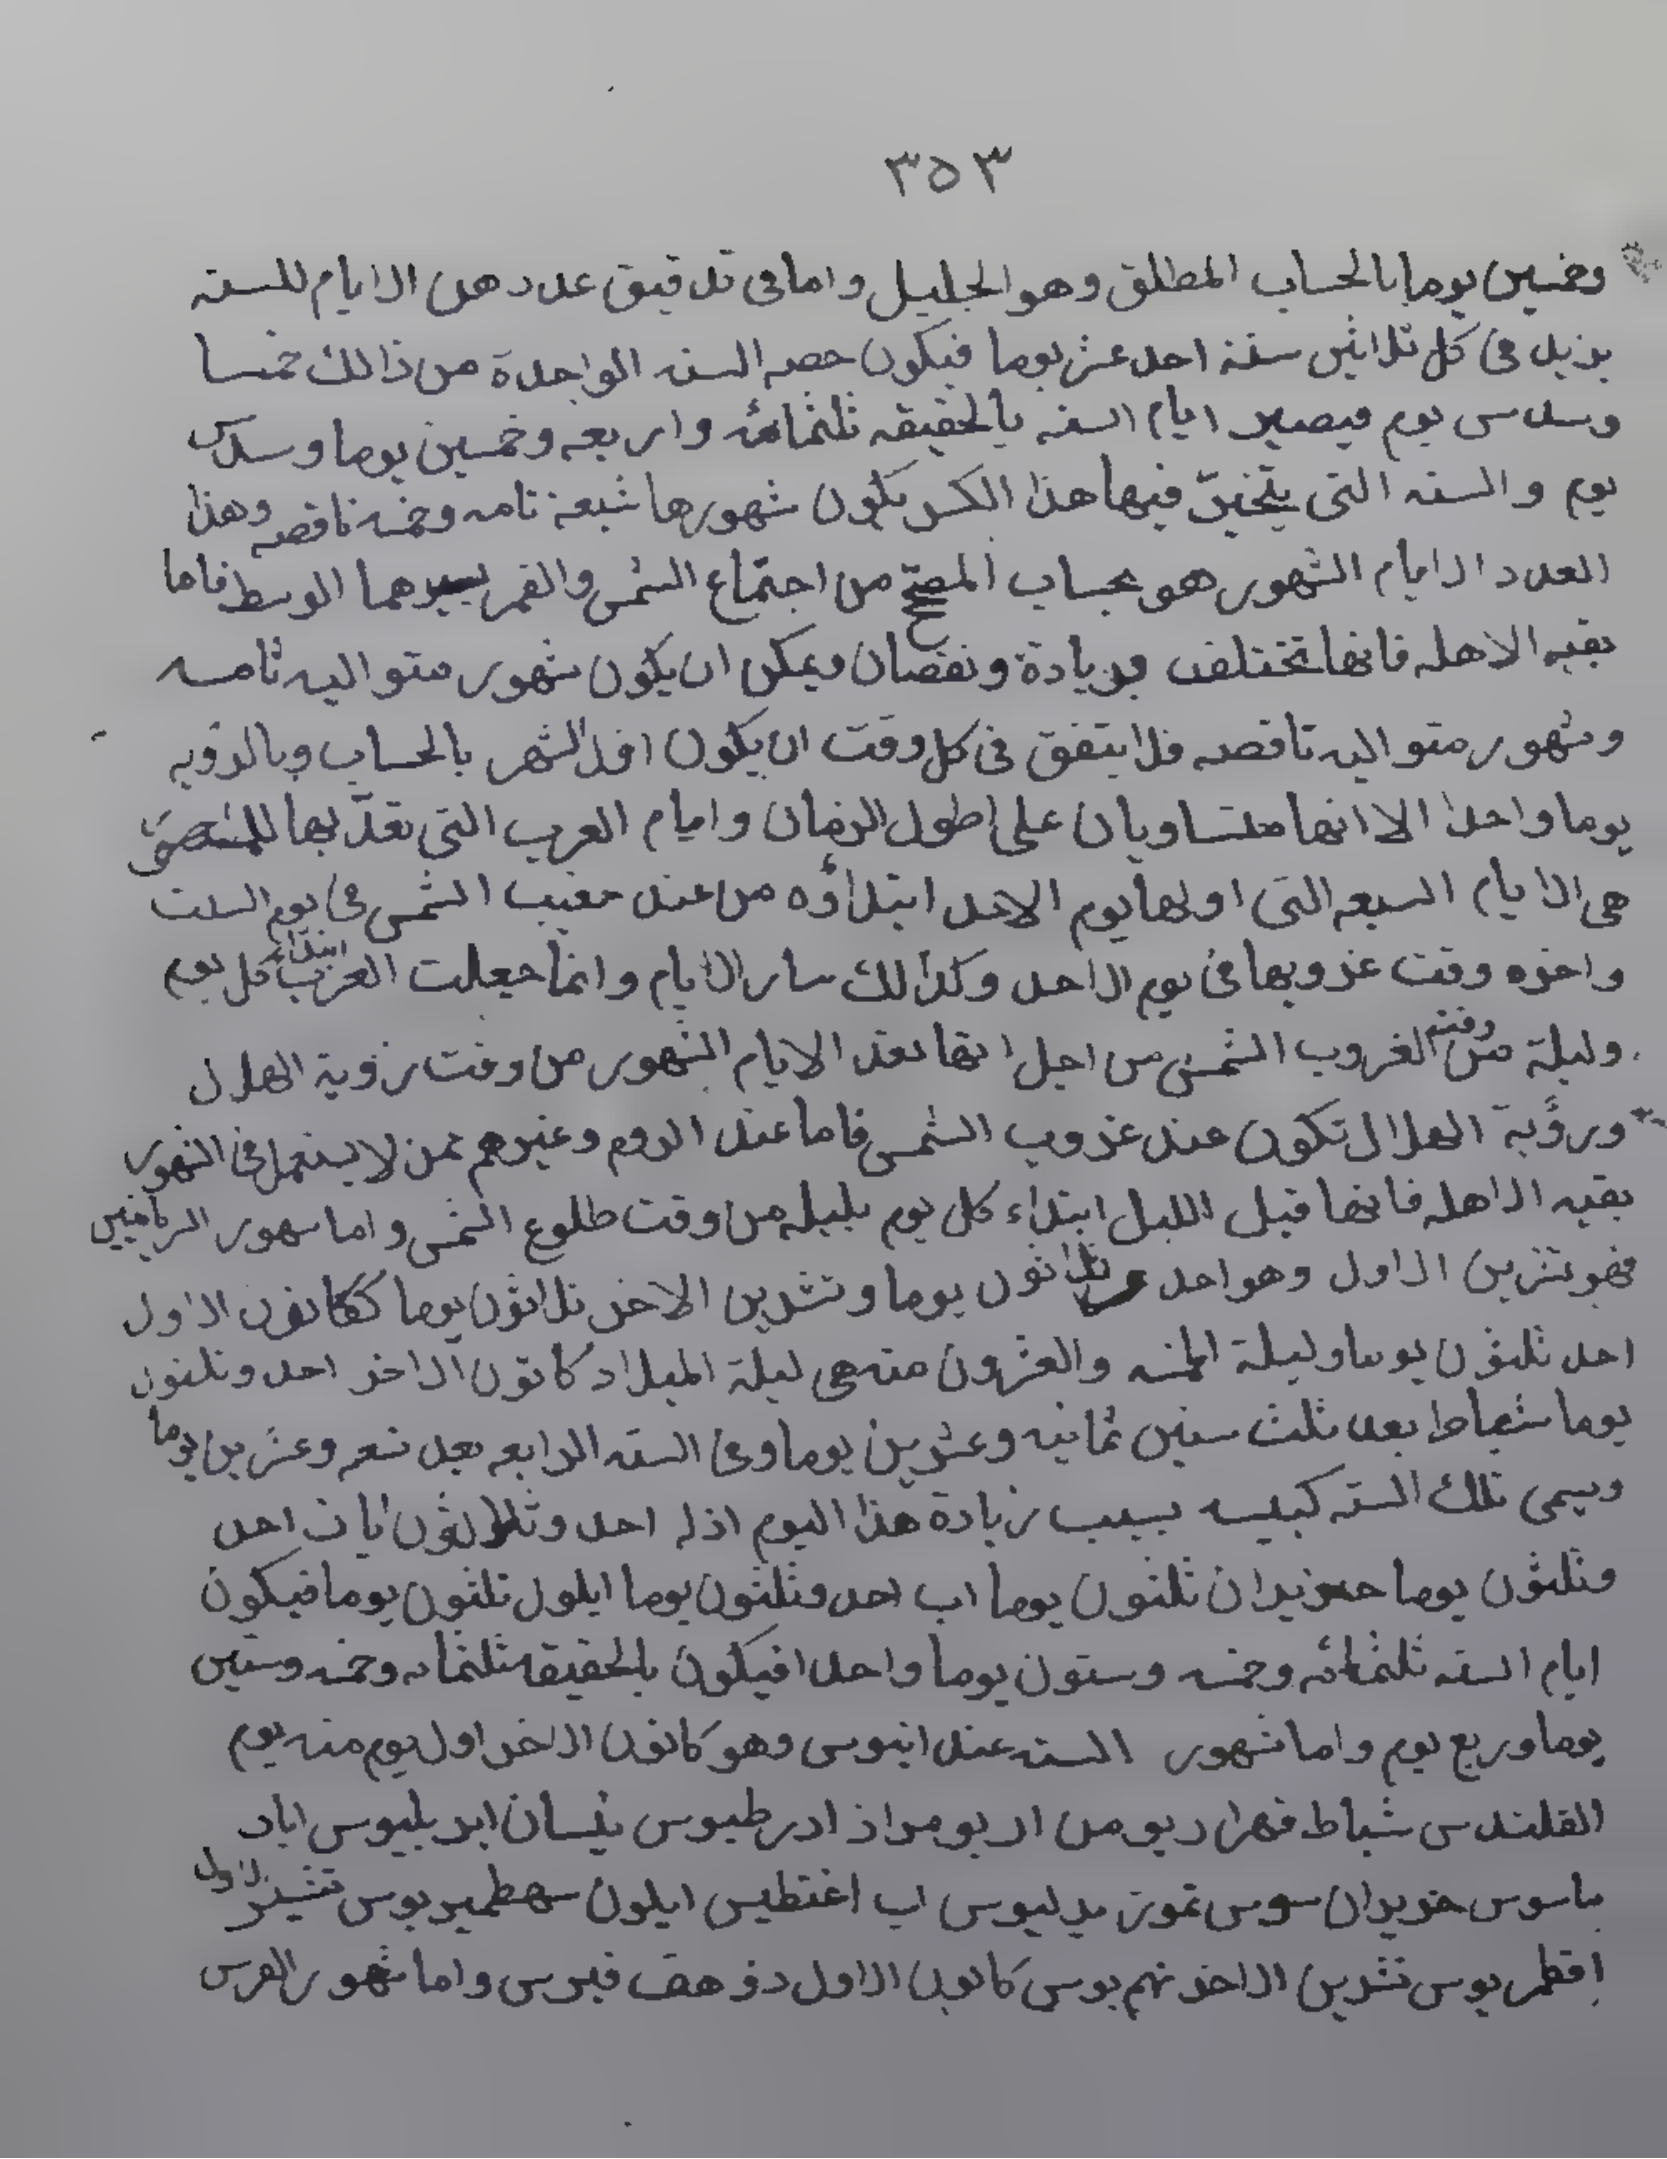 ٣٥٣
وخمسين يوما بالحساب المطلق وهو الجليل واما فى تدقيق عدد هده الايام للسنه
يزيد فى كل ثلاثين سنة احد عشر يوما فيكون حصه السنه الواحدة من ذالك خمسا
وسدسى يوم فيصير ايام السنه بالحقيقه ثلثمائه واربعه وخمسين يوما وسدس
يوم والسنه التى فيها هذا الكسر يكون شهورها سبعة تامه وخمسه ناقصه وهذا
العدد الايام الشهور هو بحساب المصحح من اجتماع الشمس والقمر بسيرهما الوسط فاما
بقيه الاهله فانها تختلف بزيادة ونقصان ويمكن ان يكون شهور متواليه تامسه
وشهور متواليه ناقصه فلا يتفق فى كل وقت ان يكون اول الشهر بالحساب وبالرؤيه
يوما واحدا الا انها متساويان على اطول الزمان وايام العرب التى تعدّ بها
هى الايام السبعه التى اولها يوم الاحد ابتداؤه من عند مغيب الشمس فى يوم السبت
واخره وقت غروبها فى يوم الاحد وكذالك ساير الايام وانما جعلت العرب ابتداء كل يوم
وليلة من وقت الغروب الشمس من اجل انها تعد الايام الشهور من وقت رؤية الهلال
ورؤية الهلال تكون عند غروب الشمس فاما عند الروم وغيرهم ممن لا يستعمل فى الشهور
بقيه الاهله فانها قبل الليل ابتداء كل يوم بليله من وقت طلوع الشمس واما شهور
فهو تشرين الاول وهو احد وثلاثون يوما وتشرين الاخر ثلاثون يوما ككانون الاول
احد ثلثون يوما وليلة الخمسه والعشرون منه هى ليلة الميلاد كانون الاخر احد وثلثون
يوما شباط بعد ثلث سنين ثمانيه وعشرين يوما وفى السنه الرابعه بعد تسعه وعشرين يوما
ويسمى تلك السنه كبيسه بسبب زيادة هذا اليوم اذار احد وثلاثون ايات احد
وثلثون يوما حزيران ثلثون يوما اب احد وثلثون يوما ايلول ثلثون يوما فيكون
ايام السنه ثلثمائه وخمسه وستون يوما واحدا فيكون بالحقيقه ثلثمائه وخمسه وستين
يوما وربع يوم واما شهور السنه عند اينوس وهو كانون الاخر اول يوم منه يوم
القلندس شباط اذار نيسان ابريليوس ايار
ماسوس حزيران تموز اب ايلون تشرين الاول
تشرين الاخر كانون الاول واما شهور الفرس